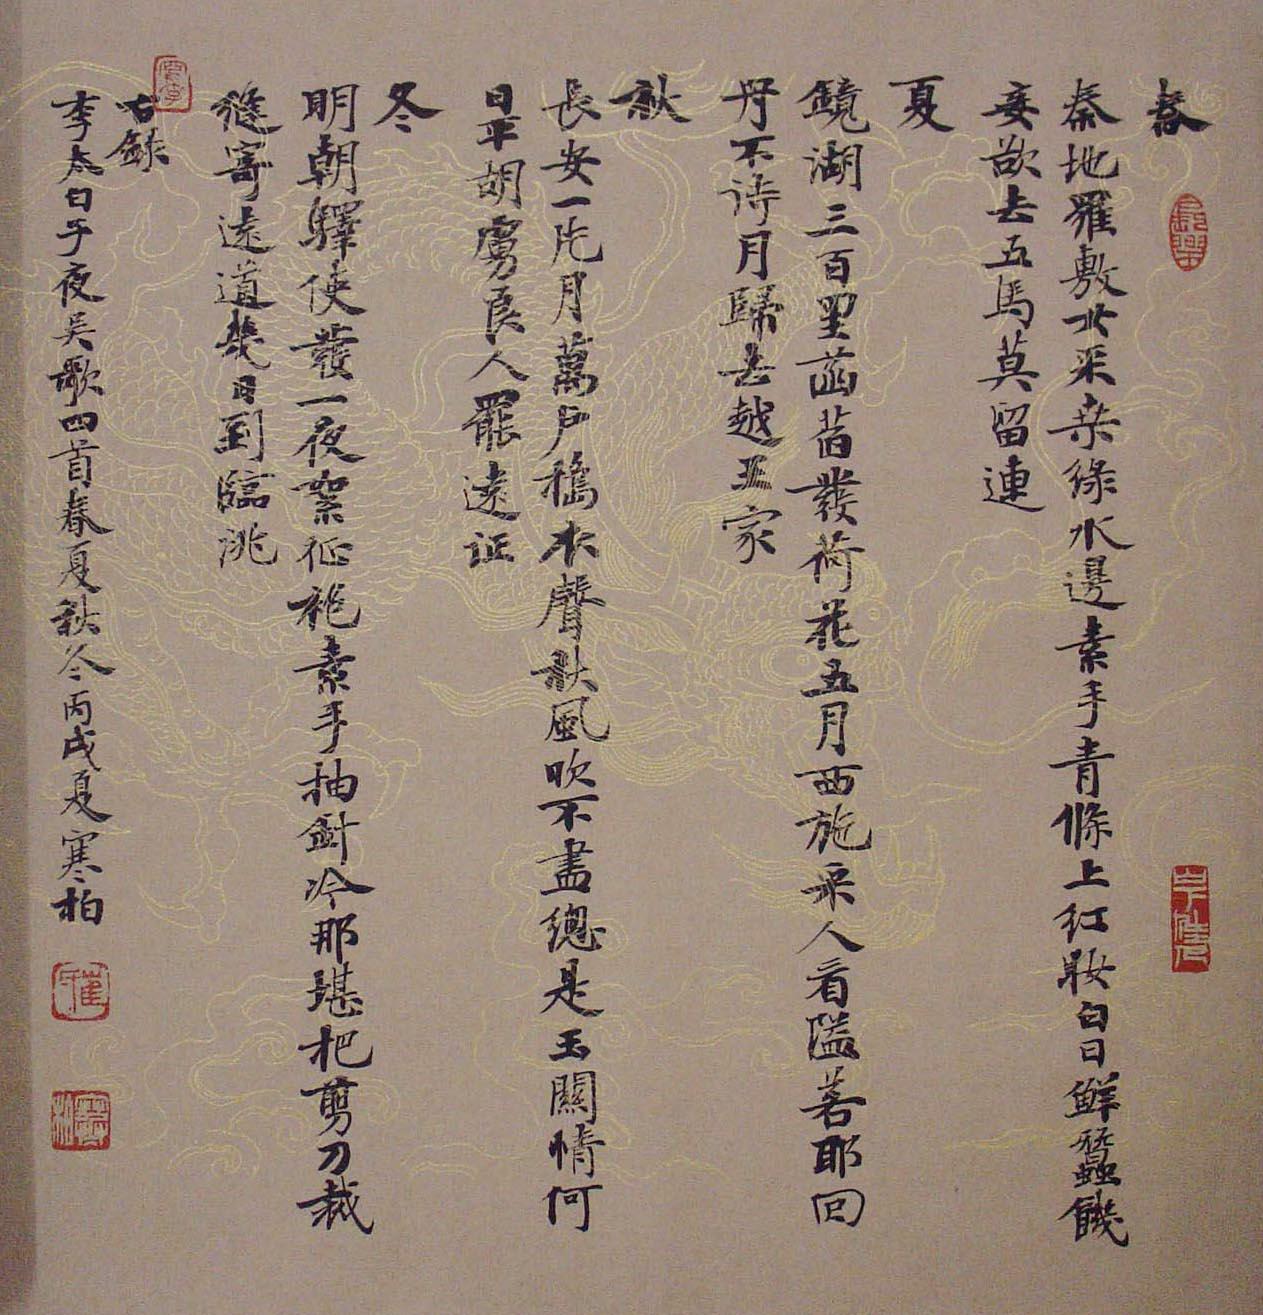 春
秦地羅敷女采桒綠水邊素手青條上紅妝白日鮮蠶饑
妾欲去五馬莫留連
夏
鏡湖三百里菡萏發荷花五月西施采人看隘若耶回
舟不待月歸去越王家
秋
長安一片月萬戶擣衣聲秋風吹不盡總是玉關情何
日平胡虜良人罷遠征
冬
明朝驛使發一夜絮征袍素手抽針冷那堪把剪刀裁
縫寄遠道幾日到臨洮
右錄
李太白子夜吳歌四首春夏秋冬丙戌夏寒柏